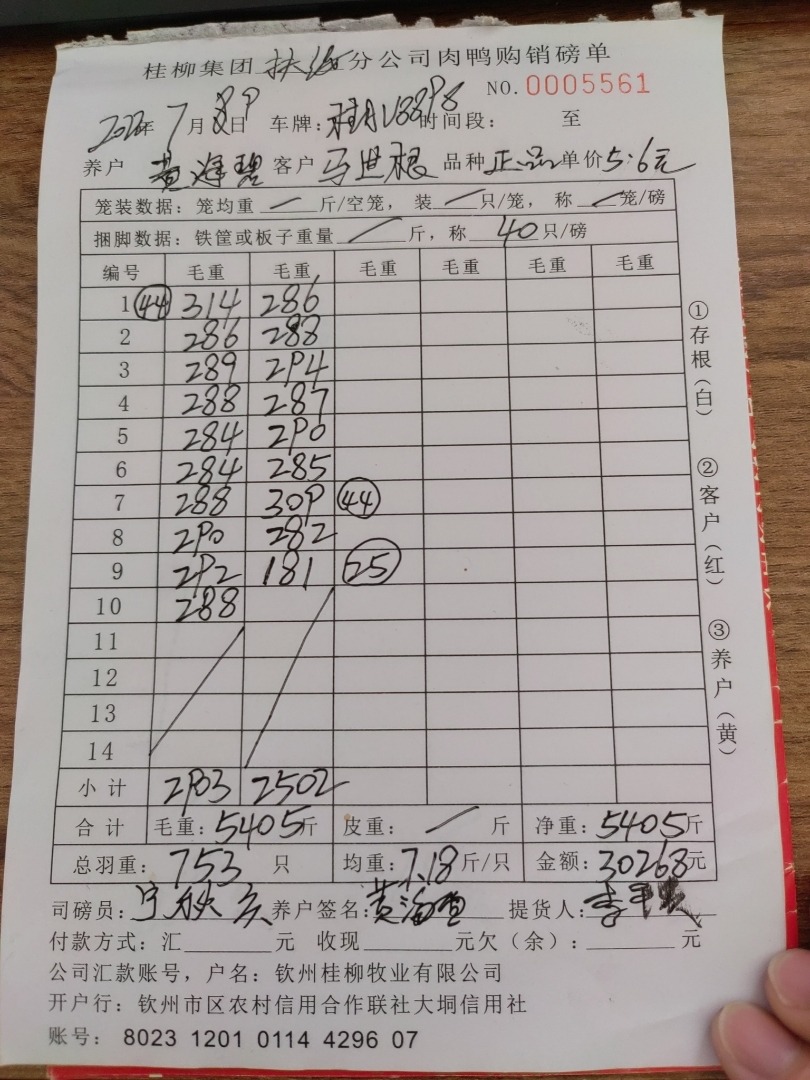 桂柳集团 扶绥 分公司肉鸭购销磅单
NO.0005561
年 7月 日 车牌: 时间段: 至
养户 黄海碧 客户 马世根 品种 正品 单价 5.6元
笼装数据: 笼均重 / 斤/空笼, 装 / 只/笼, 称 / 笼/磅
捆脚数据: 铁筐或板子重量 / 斤, 称 40 只/磅
编号 毛重 毛重 毛重 毛重 毛重 毛重
1 44 314 286
2 286 288
3 289 294
4 288 287
5 284 290
6 284 285
7 288 309 44
8 290 282
9 292 181 25
10 288
11
12
13
14
小计 2903 2502
合计 毛重: 5405斤 皮重: / 斤 净重: 5405斤
总羽重: 753 只 均重: 7.18斤/只 金额: 30268元
司磅员: 养户签名: 黄海 提货人: 李
付款方式: 汇 元 收现 元欠(余): 元
公司汇款账号, 户名: 钦州桂柳牧业有限公司
开户行: 钦州市区农村信用合作联社大垌信用社
账号: 8023 1201 0114 4296 07
①存根(白)
②客户(红)
③养户(黄)